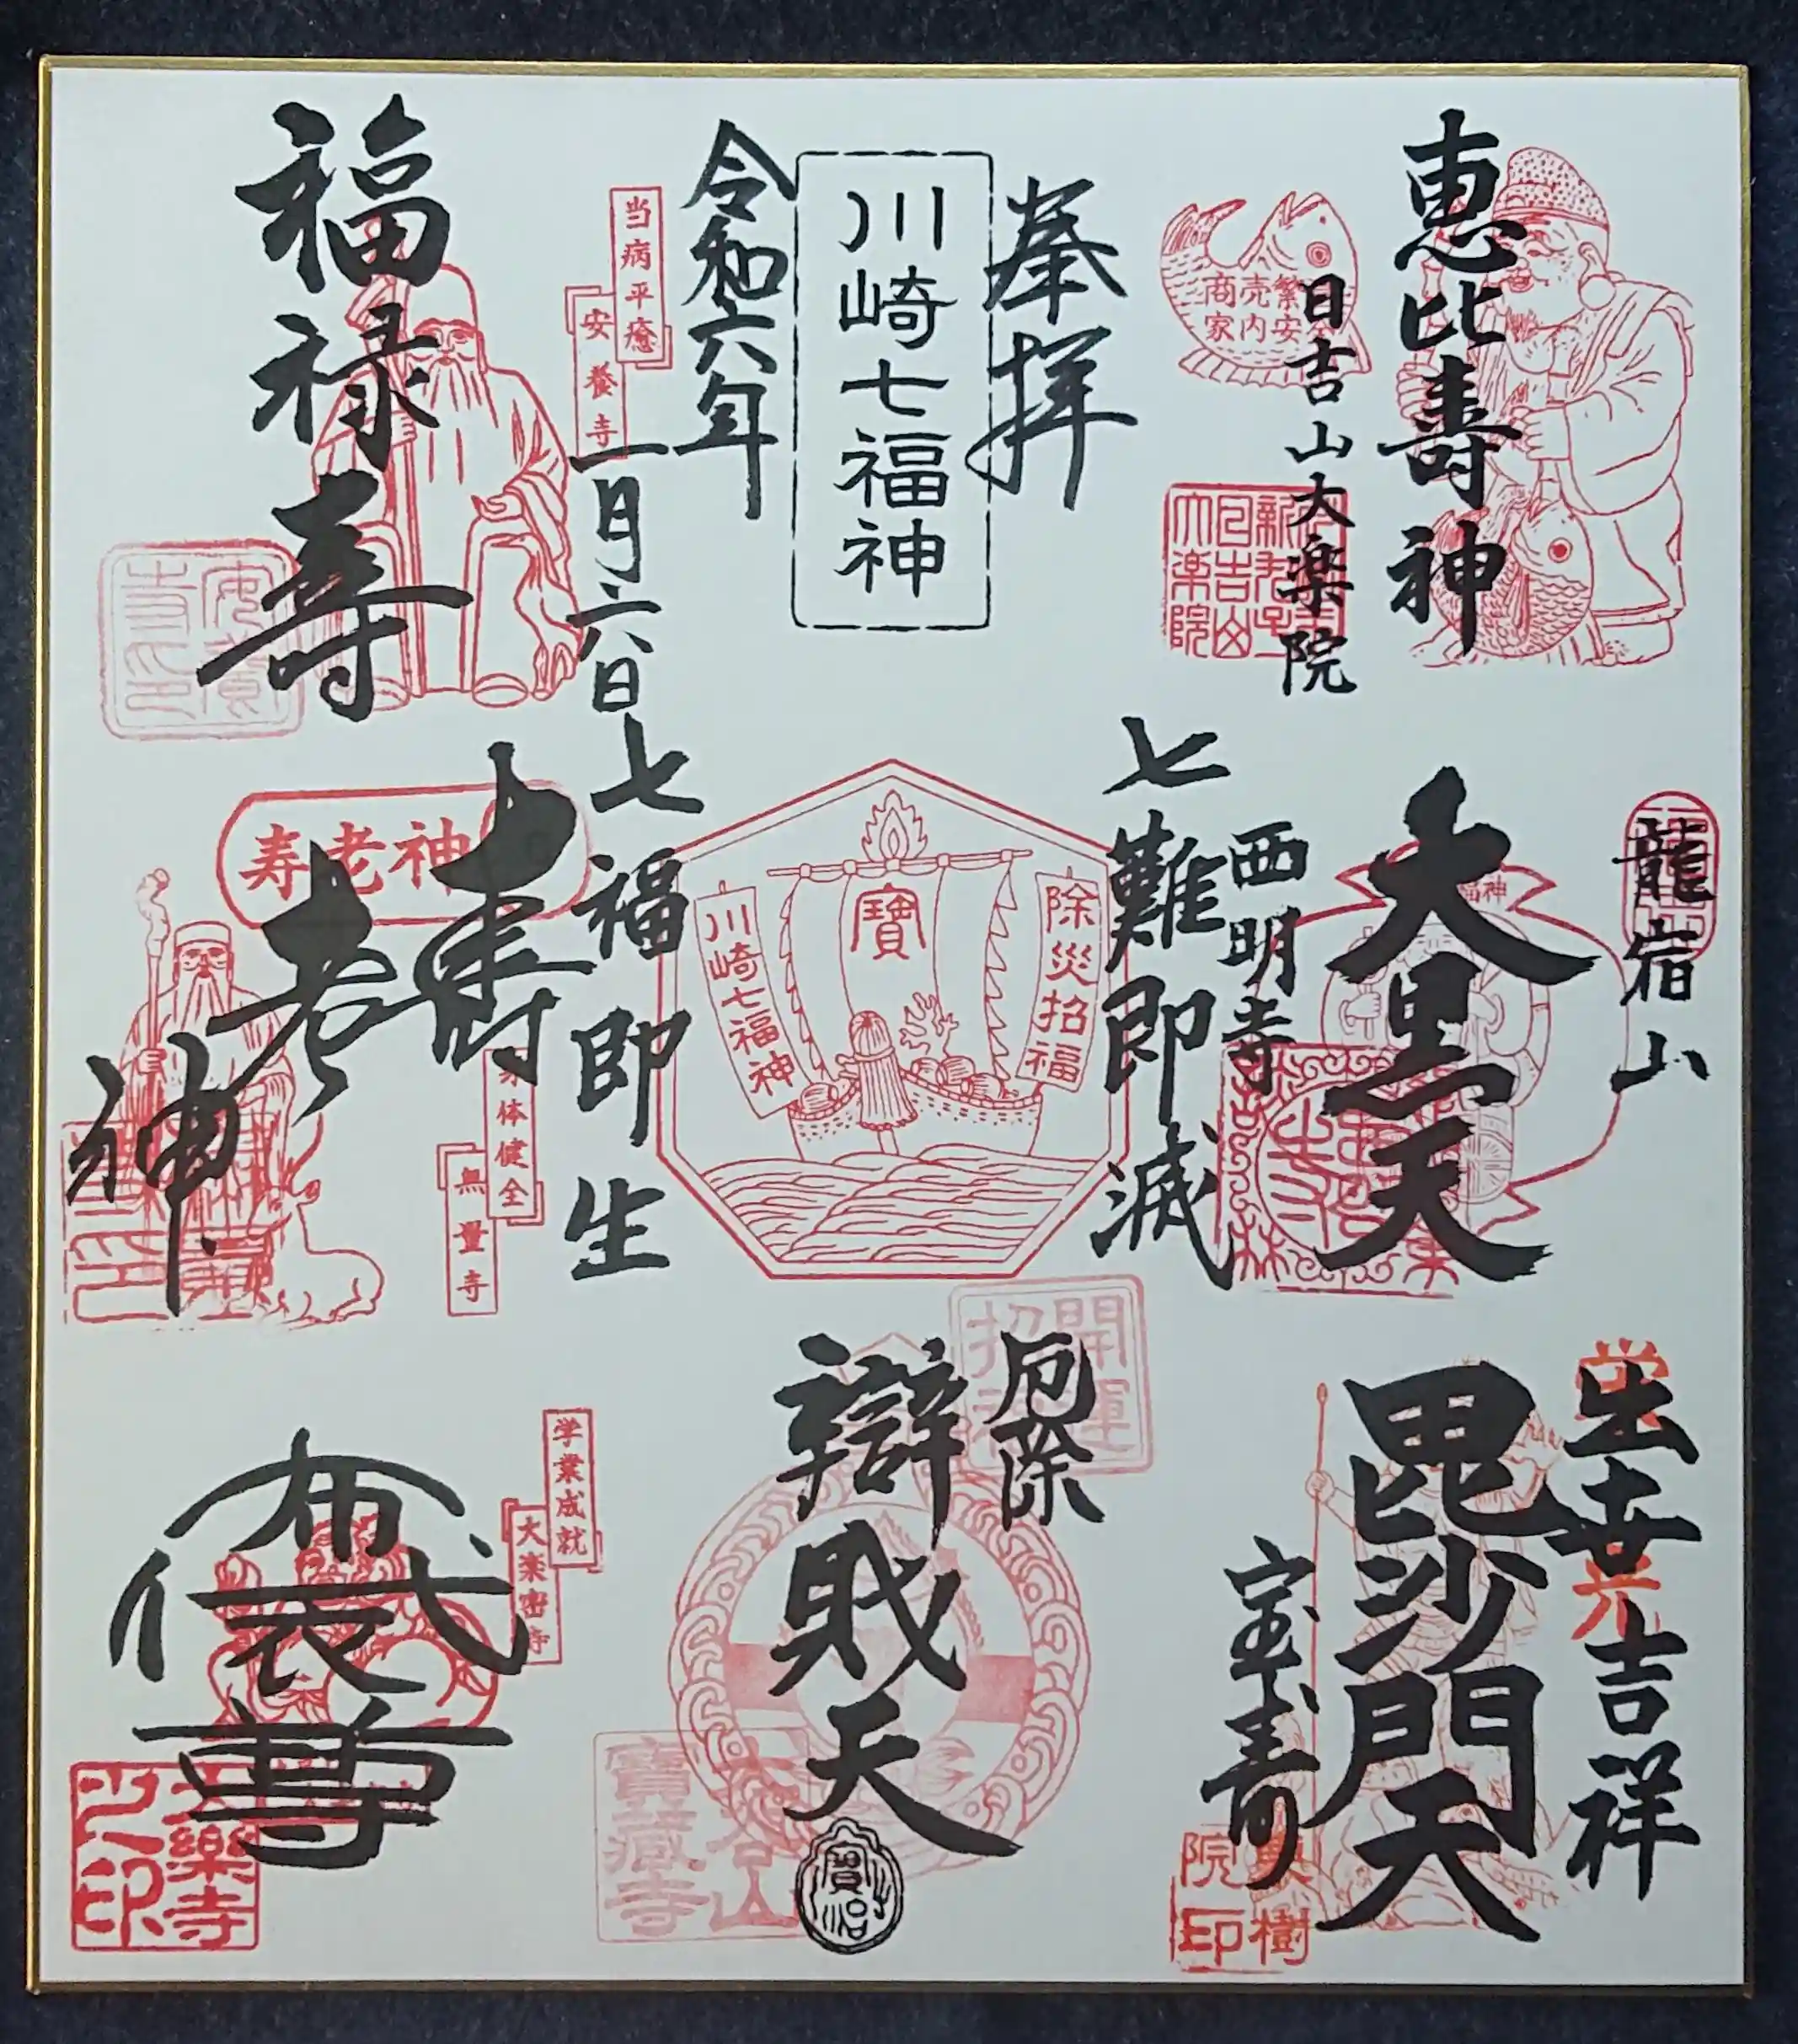 恵比壽神
日吉山大楽院
商売繁
家内安全
奉拝
川崎七福神
令和六年
一月六日
福禄寿
当病平癒
安養寺
龍宿山
大黒天
西明寺
七難即滅
除災招福
寶
川崎七福神
七福即生
壽老神
寿老神
体健全
無量寺
出世吉祥
毘沙門天
宝寿
院印
樹
厄除
開運
招
辯財天
寶蔵寺
布袋尊
学業成就
大楽密寺
楽寺
之印